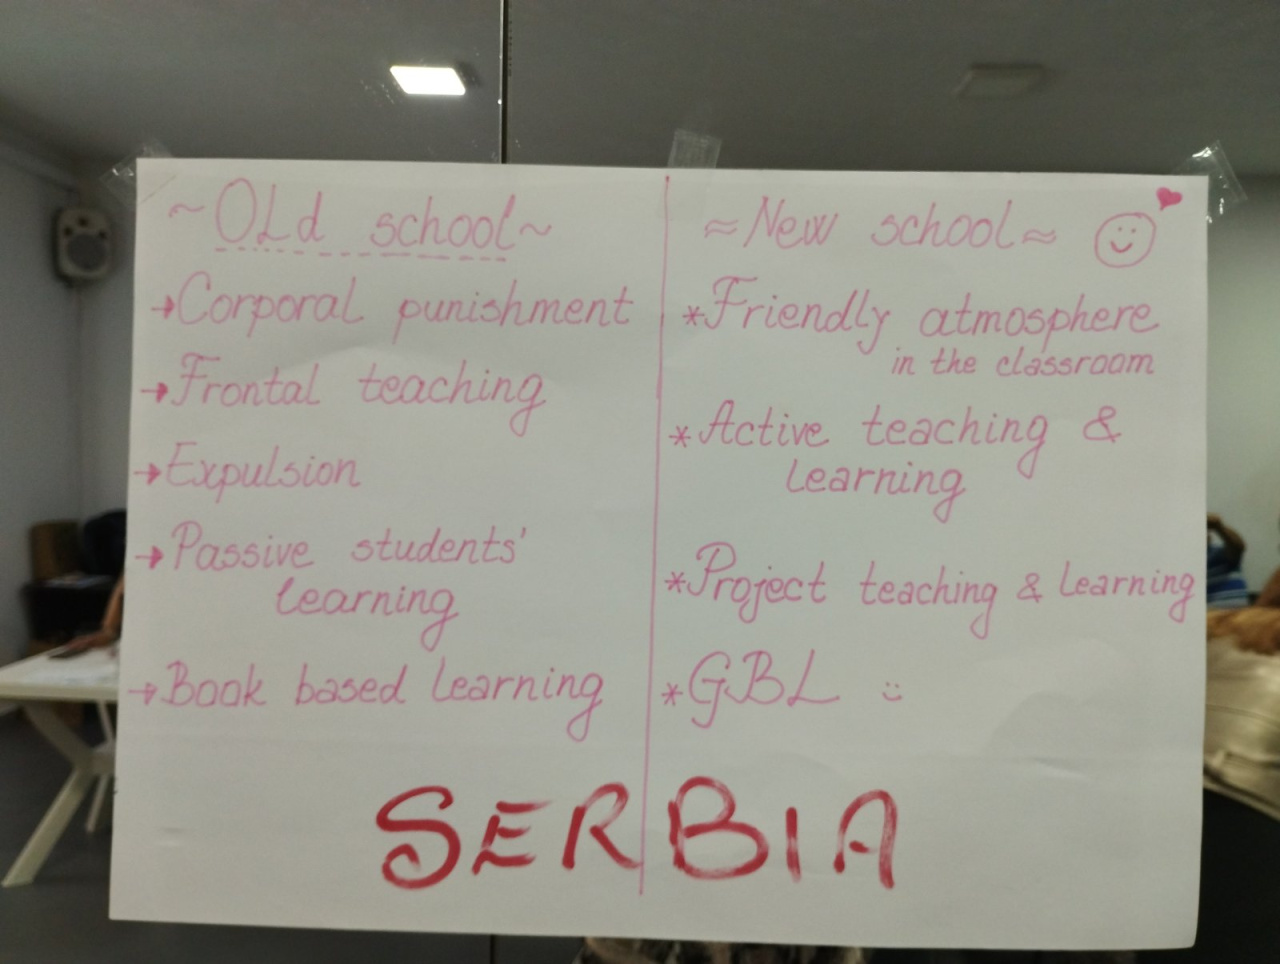 ~ OLd school ~
→ Corporal punishment
→ Frontal teaching
→ Expulsion
→ Passive students'
learning
→ Book based learning
≈ New school ≈
* Friendly atmosphere
in the classroom
* Active teaching &
learning
* Project teaching & learning
* GBL :)
SERBIA